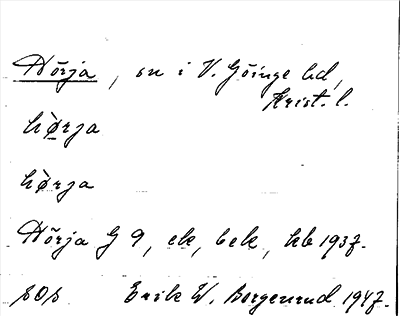 Hörja, sn i V. Göinge hd,
Krist. l.
hø̀rja
hø̀rja
Hörja G 9, ek, bek, kb 1937.
SOS Erik W. Borgenrud 1947.